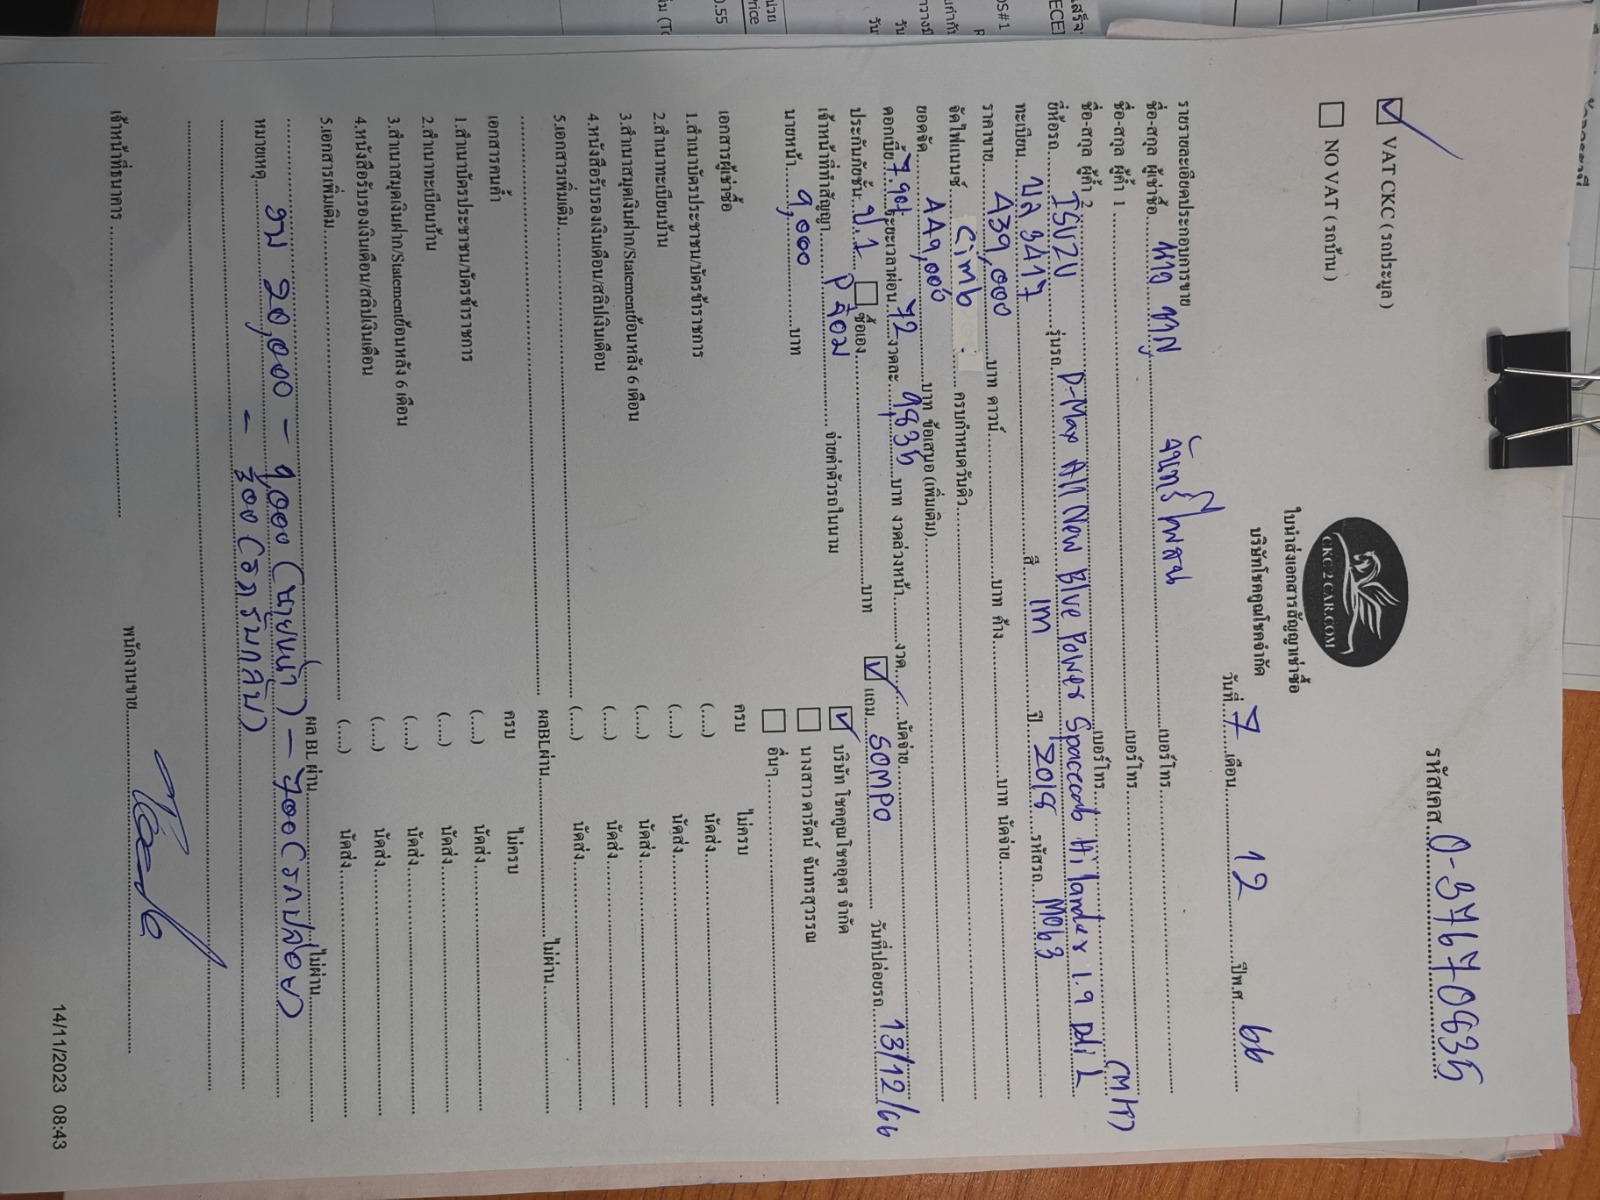 รหัสเคส 0-3767-0835
☑ VAT CKC ( รถประมูล )
☐ NO VAT ( รถบ้าน )
CKC 2 CAR.COM
ใบนำส่งเอกสารสัญญาเช่าซื้อ
บริษัทโชคคูณโชคจำกัด
วันที่ 7 เดือน 12 ปีพ.ศ 66
รายรายละเอียดประกอบการขาย
ชื่อ-สกุล ผู้เช่าซื้อ เบอร์โทร
ชื่อ-สกุล ผู้ค้ำ 1 เบอร์โทร
ชื่อ-สกุล ผู้ค้ำ 2 เบอร์โทร
ยี่ห้อรถ ISUZU รุ่นรถ D-Max All New Blue Power Spacecab Hilander 1.9 Ddi L (MT)
ทะเบียน 3417 สี เทา ปี 2018 รหัสรถ M063
ราคาขาย 439,000 บาท ดาวน์ บาท ค้าง บาท นัดจ่าย
จัดไฟแนนซ์ Cimb ครบกำหนดวันคิว
ยอดจัด 449,000 บาท ข้อเสนอ (เพิ่มเติม)
ดอกเบี้ย ระยะเวลาผ่อน 72 งวดละ 9,835 บาท งวดล่วงหน้า งวด นัดจ่าย
ประกันภัยชั้น ป.1 ☐ ซื้อเอง บาท ☑ แถม SOMPO วันที่ปล่อยรถ 13/12/66
เจ้าหน้าที่ทำสัญญา จ่ายค่าตัวรถในนาม ☑ บริษัท โชคคูณโชคอุดร จำกัด
นายหน้า 9,000 บาท ☐ นางสาว ดารัตน์ จันทรสุวรรณ
☐ อื่นๆ
เอกสารผู้เช่าซื้อ ครบ ไม่ครบ
1.สำเนาบัตรประชาชน/บัตรข้าราชการ (....) นัดส่ง
2.สำเนาทะเบียนบ้าน (....) นัดส่ง
3.สำเนาสมุดเงินฝาก/Statementย้อนหลัง 6 เดือน (....) นัดส่ง
4.หนังสือรับรองเงินเดือน/สลิปเงินเดือน (....) นัดส่ง
5.เอกสารเพิ่มเติม (....) นัดส่ง
ผลBLผ่าน ไม่ผ่าน
เอกสารคนค้ำ ครบ ไม่ครบ
1.สำเนาบัตรประชาชน/บัตรข้าราชการ (....) นัดส่ง
2.สำเนาทะเบียนบ้าน (....) นัดส่ง
3.สำเนาสมุดเงินฝาก/Statementย้อนหลัง 6 เดือน (....) นัดส่ง
4.หนังสือรับรองเงินเดือน/สลิปเงินเดือน (....) นัดส่ง
5.เอกสารเพิ่มเติม (....) นัดส่ง
ผล BL ผ่าน ไม่ผ่าน
หมายเหตุ 20,000 - 9,000 (นายหน้า) - 500 (รถปล่อย)
- 300 (รถรับกลับ)
เจ้าหน้าที่ธนาคาร พนักงานขาย
14/11/2023 08:43